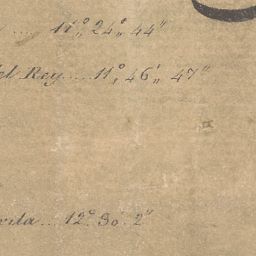 .... 11° 24' 44"
el Rey.... 11° 46' 47"
... 12° 30' 2"